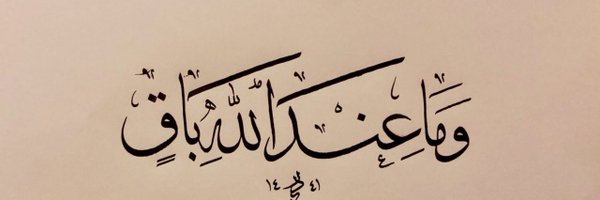 وَمَا عِنْدَ اللَّهِ بَاقٍ
١٤٤١